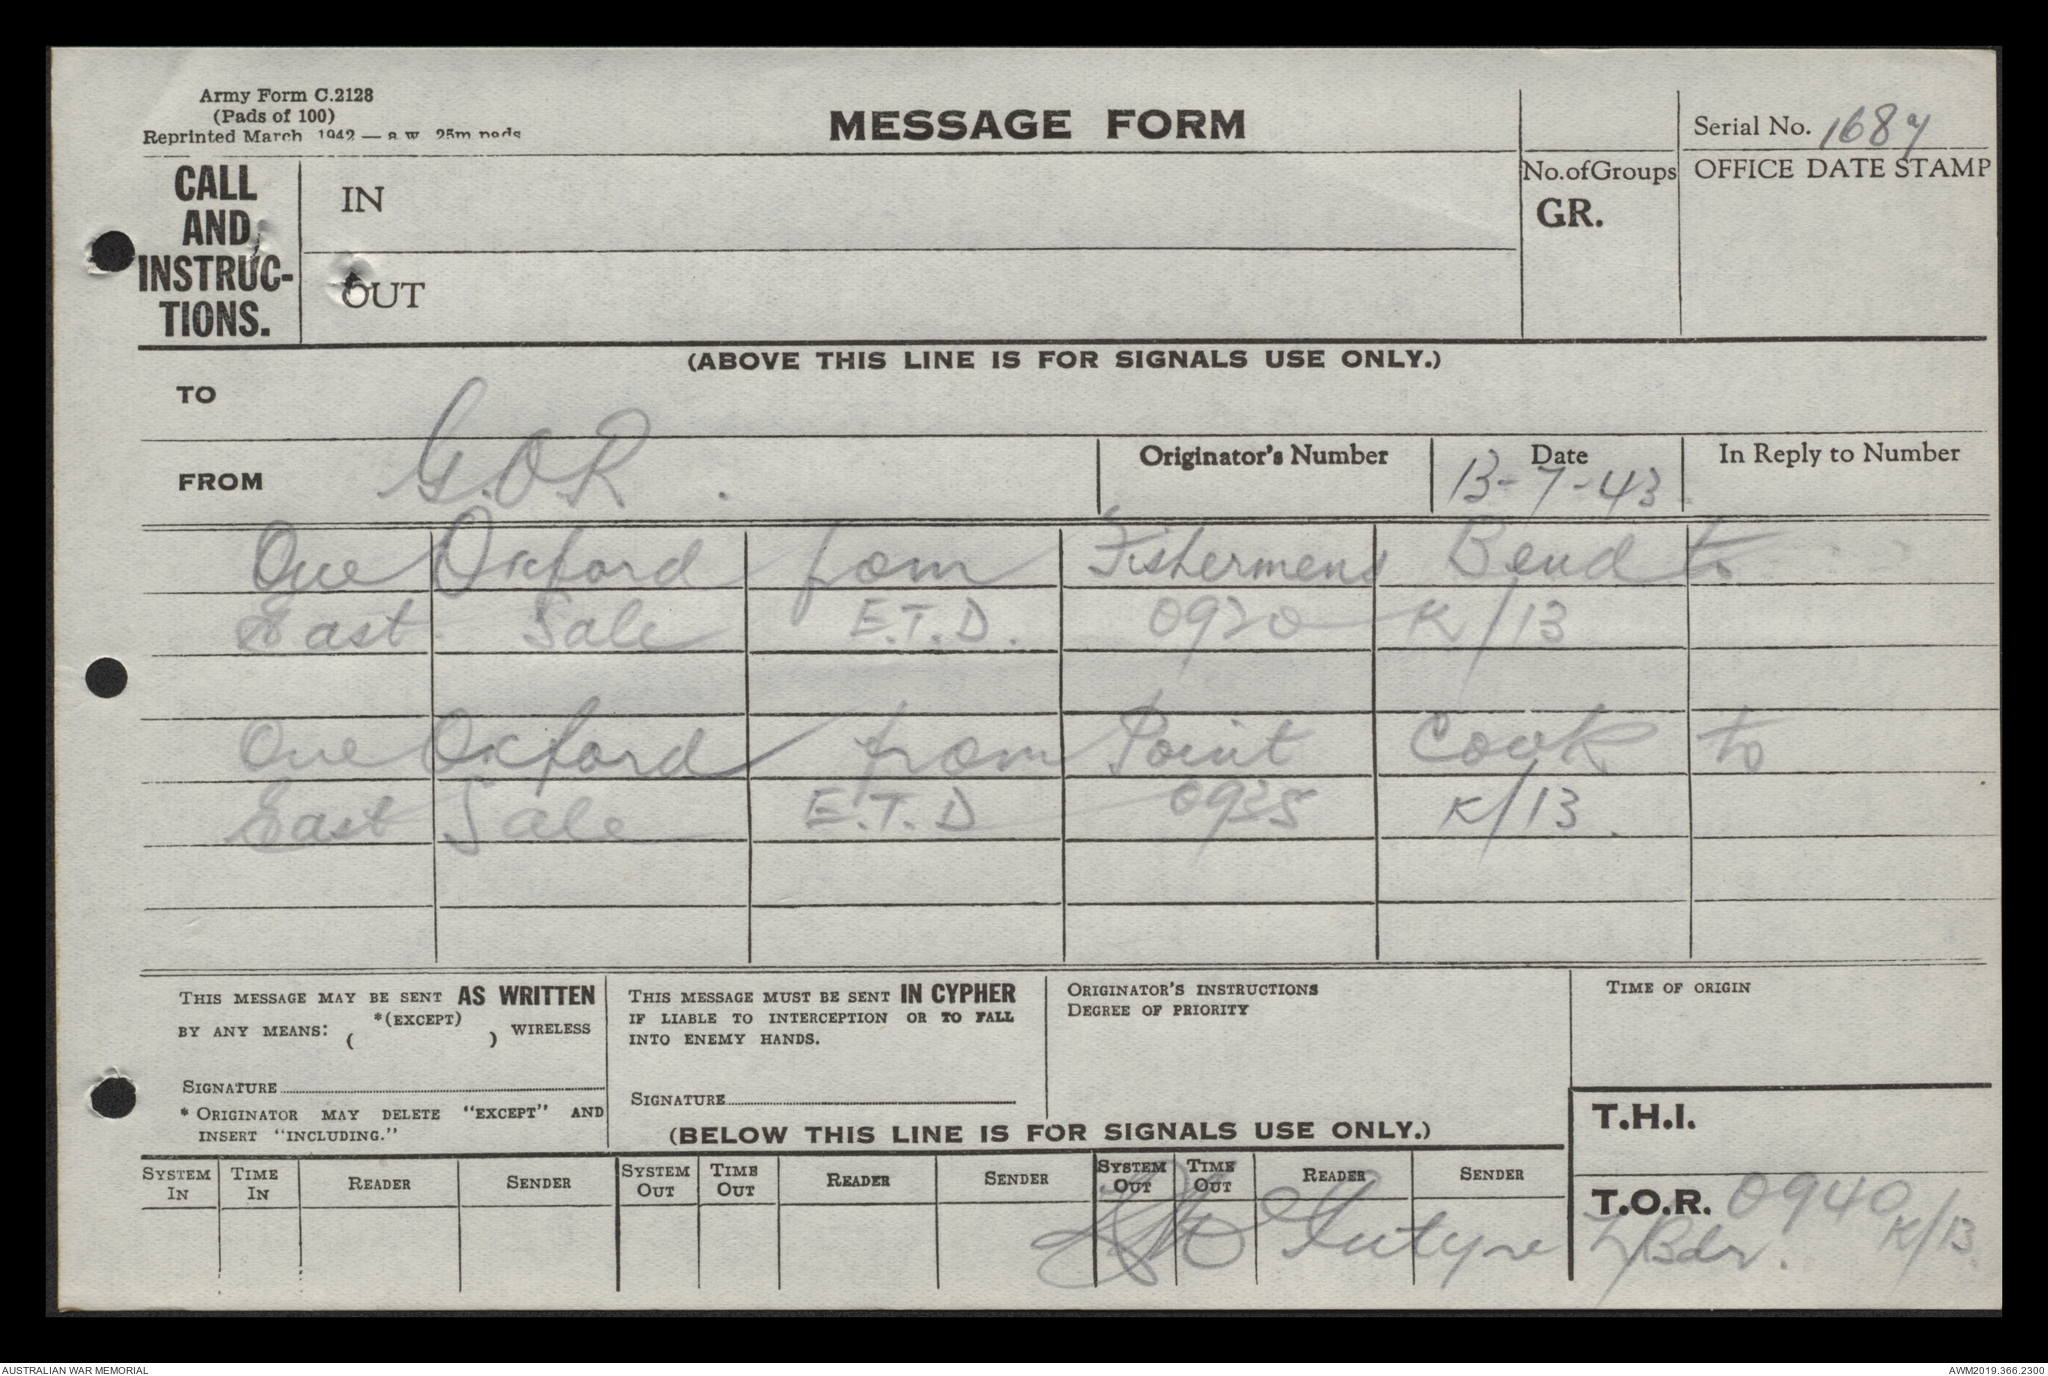 Army Form C.2128
(Pads of 100)
Reprinted March 1942 — a.w. 25m pads
MESSAGE FORM
Serial No. 168
CALL AND INSTRUC-TIONS.
IN
OUT
No. of Groups
GR.
OFFICE DATE STAMP
(ABOVE THIS LINE IS FOR SIGNALS USE ONLY.)
TO
FROM G.O.R.
Originator's Number
Date
13-7-43
In Reply to Number
One Oxford from Fishermens Bend to
East Sale E.T.D. 0920 K/13
One Oxford from Point Cook to
East Sale E.T.D 0935 K/13.
THIS MESSAGE MAY BE SENT AS WRITTEN
BY ANY MEANS: *(EXCEPT) ( ) WIRELESS
SIGNATURE
* ORIGINATOR MAY DELETE "EXCEPT" AND
INSERT "INCLUDING."
THIS MESSAGE MUST BE SENT IN CYPHER
IF LIABLE TO INTERCEPTION OR TO FALL
INTO ENEMY HANDS.
SIGNATURE
ORIGINATOR'S INSTRUCTIONS
DEGREE OF PRIORITY
TIME OF ORIGIN
(BELOW THIS LINE IS FOR SIGNALS USE ONLY.)
T.H.I.
SYSTEM IN TIME IN READER SENDER SYSTEM OUT TIME OUT READER SENDER SYSTEM OUT TIME OUT READER SENDER
T.O.R. 0940 K/13
L/Bdr.
AUSTRALIAN WAR MEMORIAL
AWM2019.366.2300